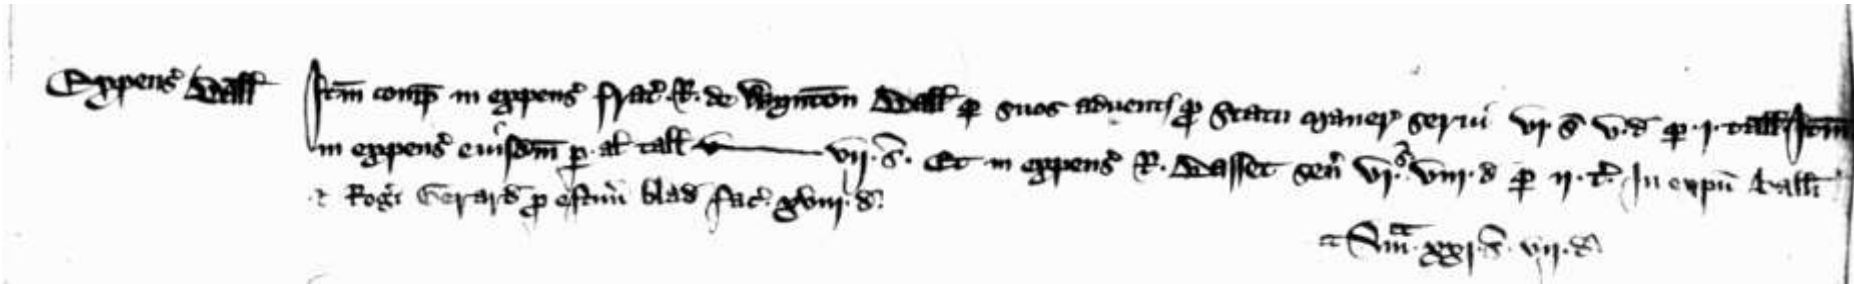 Expens' Ball'i Itm comp in expens' frat' R. de Wynton Ball'i p suos advent' p statu maner' servi' vj. s v. d p. j. tall' Itm
in expens' eiusdm p. al' tall' vij. s. Et in expens' R. Basset sen' vj. s. viij. d p ij. t'. In expn' Ball'i
& Rog'i Gerard p estim' blad fac' xviij. d.
Sma xxj. s. vij. d.